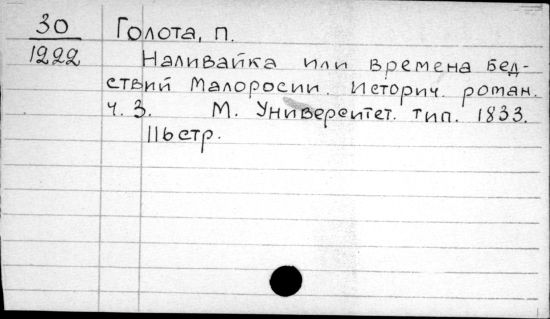 30 Голота, П.
1222 Наливайка или времена бед-
ствий Малоросии. Историч. роман.
Ч. 3. М. Университет. тип. 1833.
116 стр.